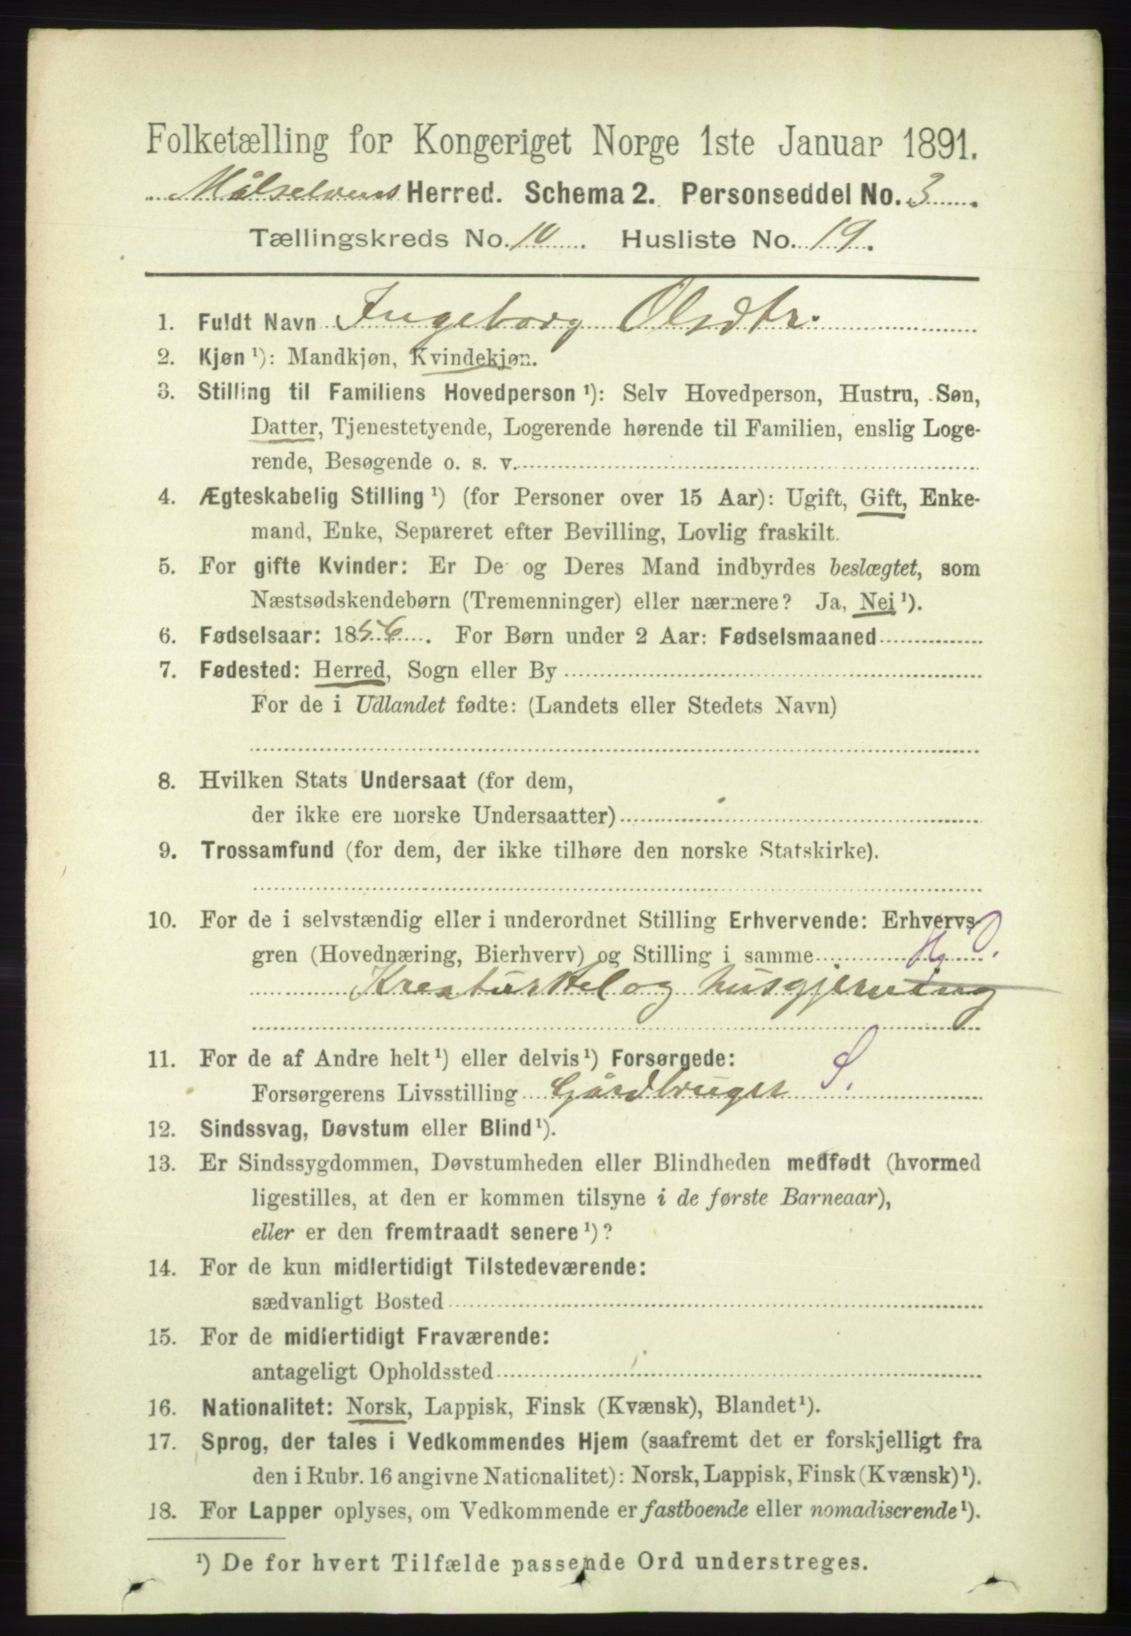 Folketælling for Kongeriget Norge 1ste Januar 1891.
Målselvens Herred. Schema 2. Personseddel No. 3.
Tællingskreds No. 10. Husliste No. 19.
1. Fuldt Navn Ingeborg Olsdtr.
2. Kjøn ¹): Mandkjøn, Kvindekjøn.
3. Stilling til Familiens Hovedperson ¹): Selv Hovedperson, Hustru, Søn,
Datter, Tjenestetyende, Logerende hørende til Familien, enslig Loge-
rende, Besøgende o. s. v.
4. Ægteskabelig Stilling ¹) (for Personer over 15 Aar): Ugift, Gift, Enke-
mand, Enke, Separeret efter Bevilling, Lovlig fraskilt.
5. For gifte Kvinder: Er De og Deres Mand indbyrdes beslægtet, som
Næstsødskendebørn (Tremenninger) eller nærmere? Ja, Nei ¹).
6. Fødselsaar: 1856. For Børn under 2 Aar: Fødselsmaaned
7. Fødested: Herred, Sogn eller By
For de i Udlandet fødte: (Landets eller Stedets Navn)
8. Hvilken Stats Undersaat (for dem,
der ikke ere norske Undersaatter)
9. Trossamfund (for dem, der ikke tilhøre den norske Statskirke).
10. For de i selvstændig eller i underordnet Stilling Erhvervende: Erhvervs-
gren (Hovednæring, Bierhverv) og Stilling i samme
Kreaturstel og husgjerning
11. For de af Andre helt ¹) eller delvis ¹) Forsørgede:
Forsørgerens Livsstilling Gårdbruger S.
12. Sindssvag, Døvstum eller Blind ¹).
13. Er Sindssygdommen, Døvstumheden eller Blindheden medfødt (hvormed
ligestilles, at den er kommen tilsyne i de første Barneaar),
eller er den fremtraadt senere ¹)?
14. For de kun midlertidigt Tilstedeværende:
sædvanligt Bosted
15. For de midlertidigt Fraværende:
antageligt Opholdssted
16. Nationalitet: Norsk, Lappisk, Finsk (Kvænsk), Blandet ¹).
17. Sprog, der tales i Vedkommendes Hjem (saafremt det er forskjelligt fra
den i Rubr. 16 angivne Nationalitet): Norsk, Lappisk, Finsk (Kvænsk) ¹).
18. For Lapper oplyses, om Vedkommende er fastboende eller nomadiserende ¹).
¹) De for hvert Tilfælde passende Ord understreges.